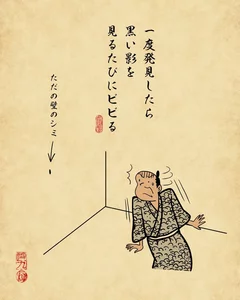 一度発見したら
黒い影を
見るたびにビビる
ただの壁のシミ